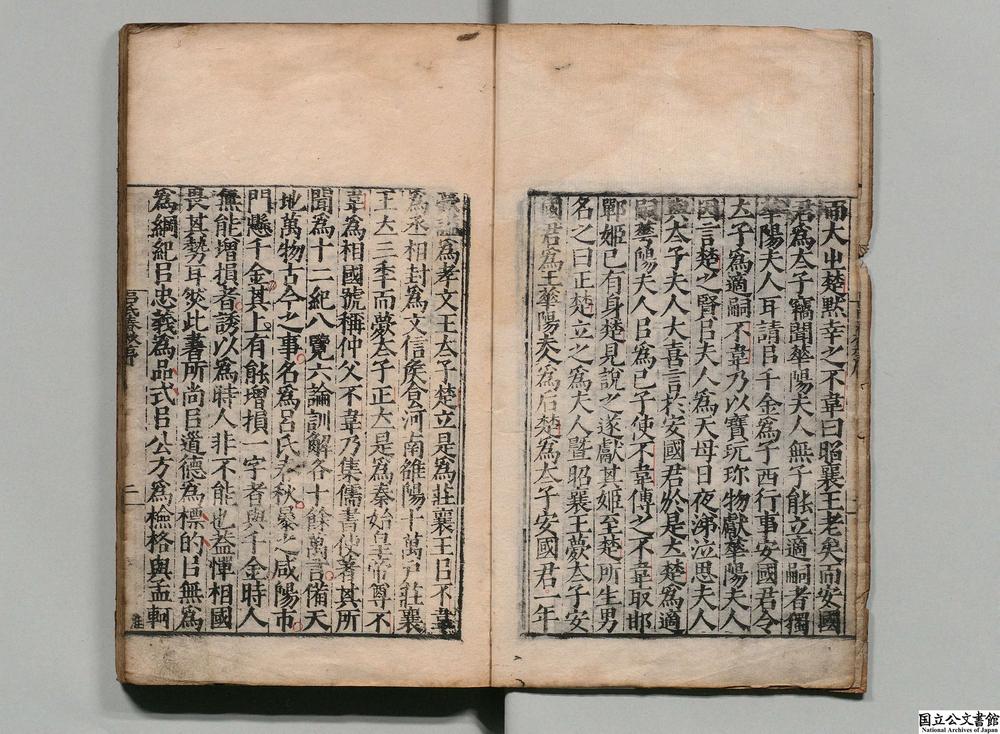 而大出楚默幸之不韋曰昭襄王老矣而安國
君爲太子竊聞華陽夫人無子能立適嗣者獨
華陽夫人耳請㠯千金爲子西行事安國君令
太子爲適嗣不韋乃以寶玩珎物獻華陽夫人
因言楚之賢㠯夫人爲天母日夜涕泣思夫人
與太子夫人大喜言於安國君於是立楚爲適
嗣華陽夫人㠯爲已子使不韋傅之不韋取邯
鄲姬已有身楚見說之遂獻其姬至楚所生男
名之曰正楚立之爲夫人暨昭襄王薨太子安
國君爲王華陽夫人爲后楚爲太子安國君一年
薨謚爲孝文王太子楚立是爲莊襄王㠯不韋
爲丞相封爲文信矦食河南雒陽十萬戸莊襄
王立三秊而薨太子正立是爲秦始皇帝尊不
韋爲相國號稱仲父不韋乃集儒書使著其所
聞爲十二紀八覽六論訓解各十餘萬言備天
地萬物古今之事名爲呂氏春秋暴之咸陽市
門懸千金其上有能增損一字者與千金時人
無能增損者誘以爲時人非不能也蓋憚相國
畏其勢耳然此書所尚㠯道德爲標的㠯無爲
爲綱紀㠯忠義爲品式㠯公方爲檢格與孟軻
呂氏春秋序
二
国立公文書館
National Archives of Japan